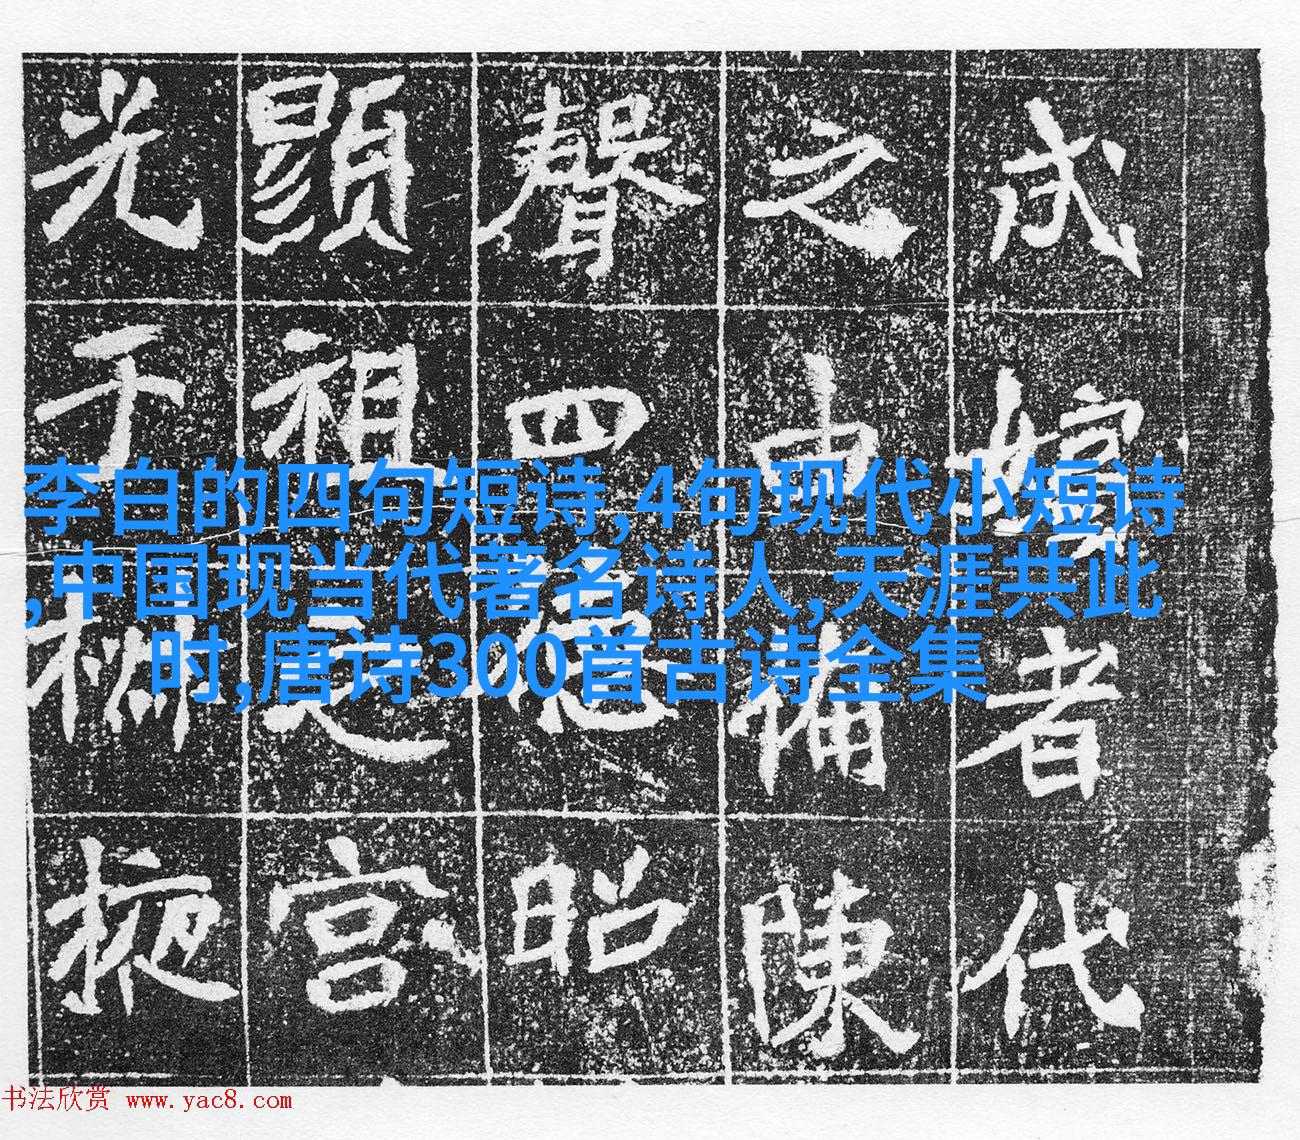 成嬪者代
之備陳
聲四德昭
顯祖之宮
光于椒掖
李白的四句短诗,4句现代小短诗
,中国现当代著名诗人,天涯共此
时,唐诗300首古诗全集
书法欣赏 www.yac8.com